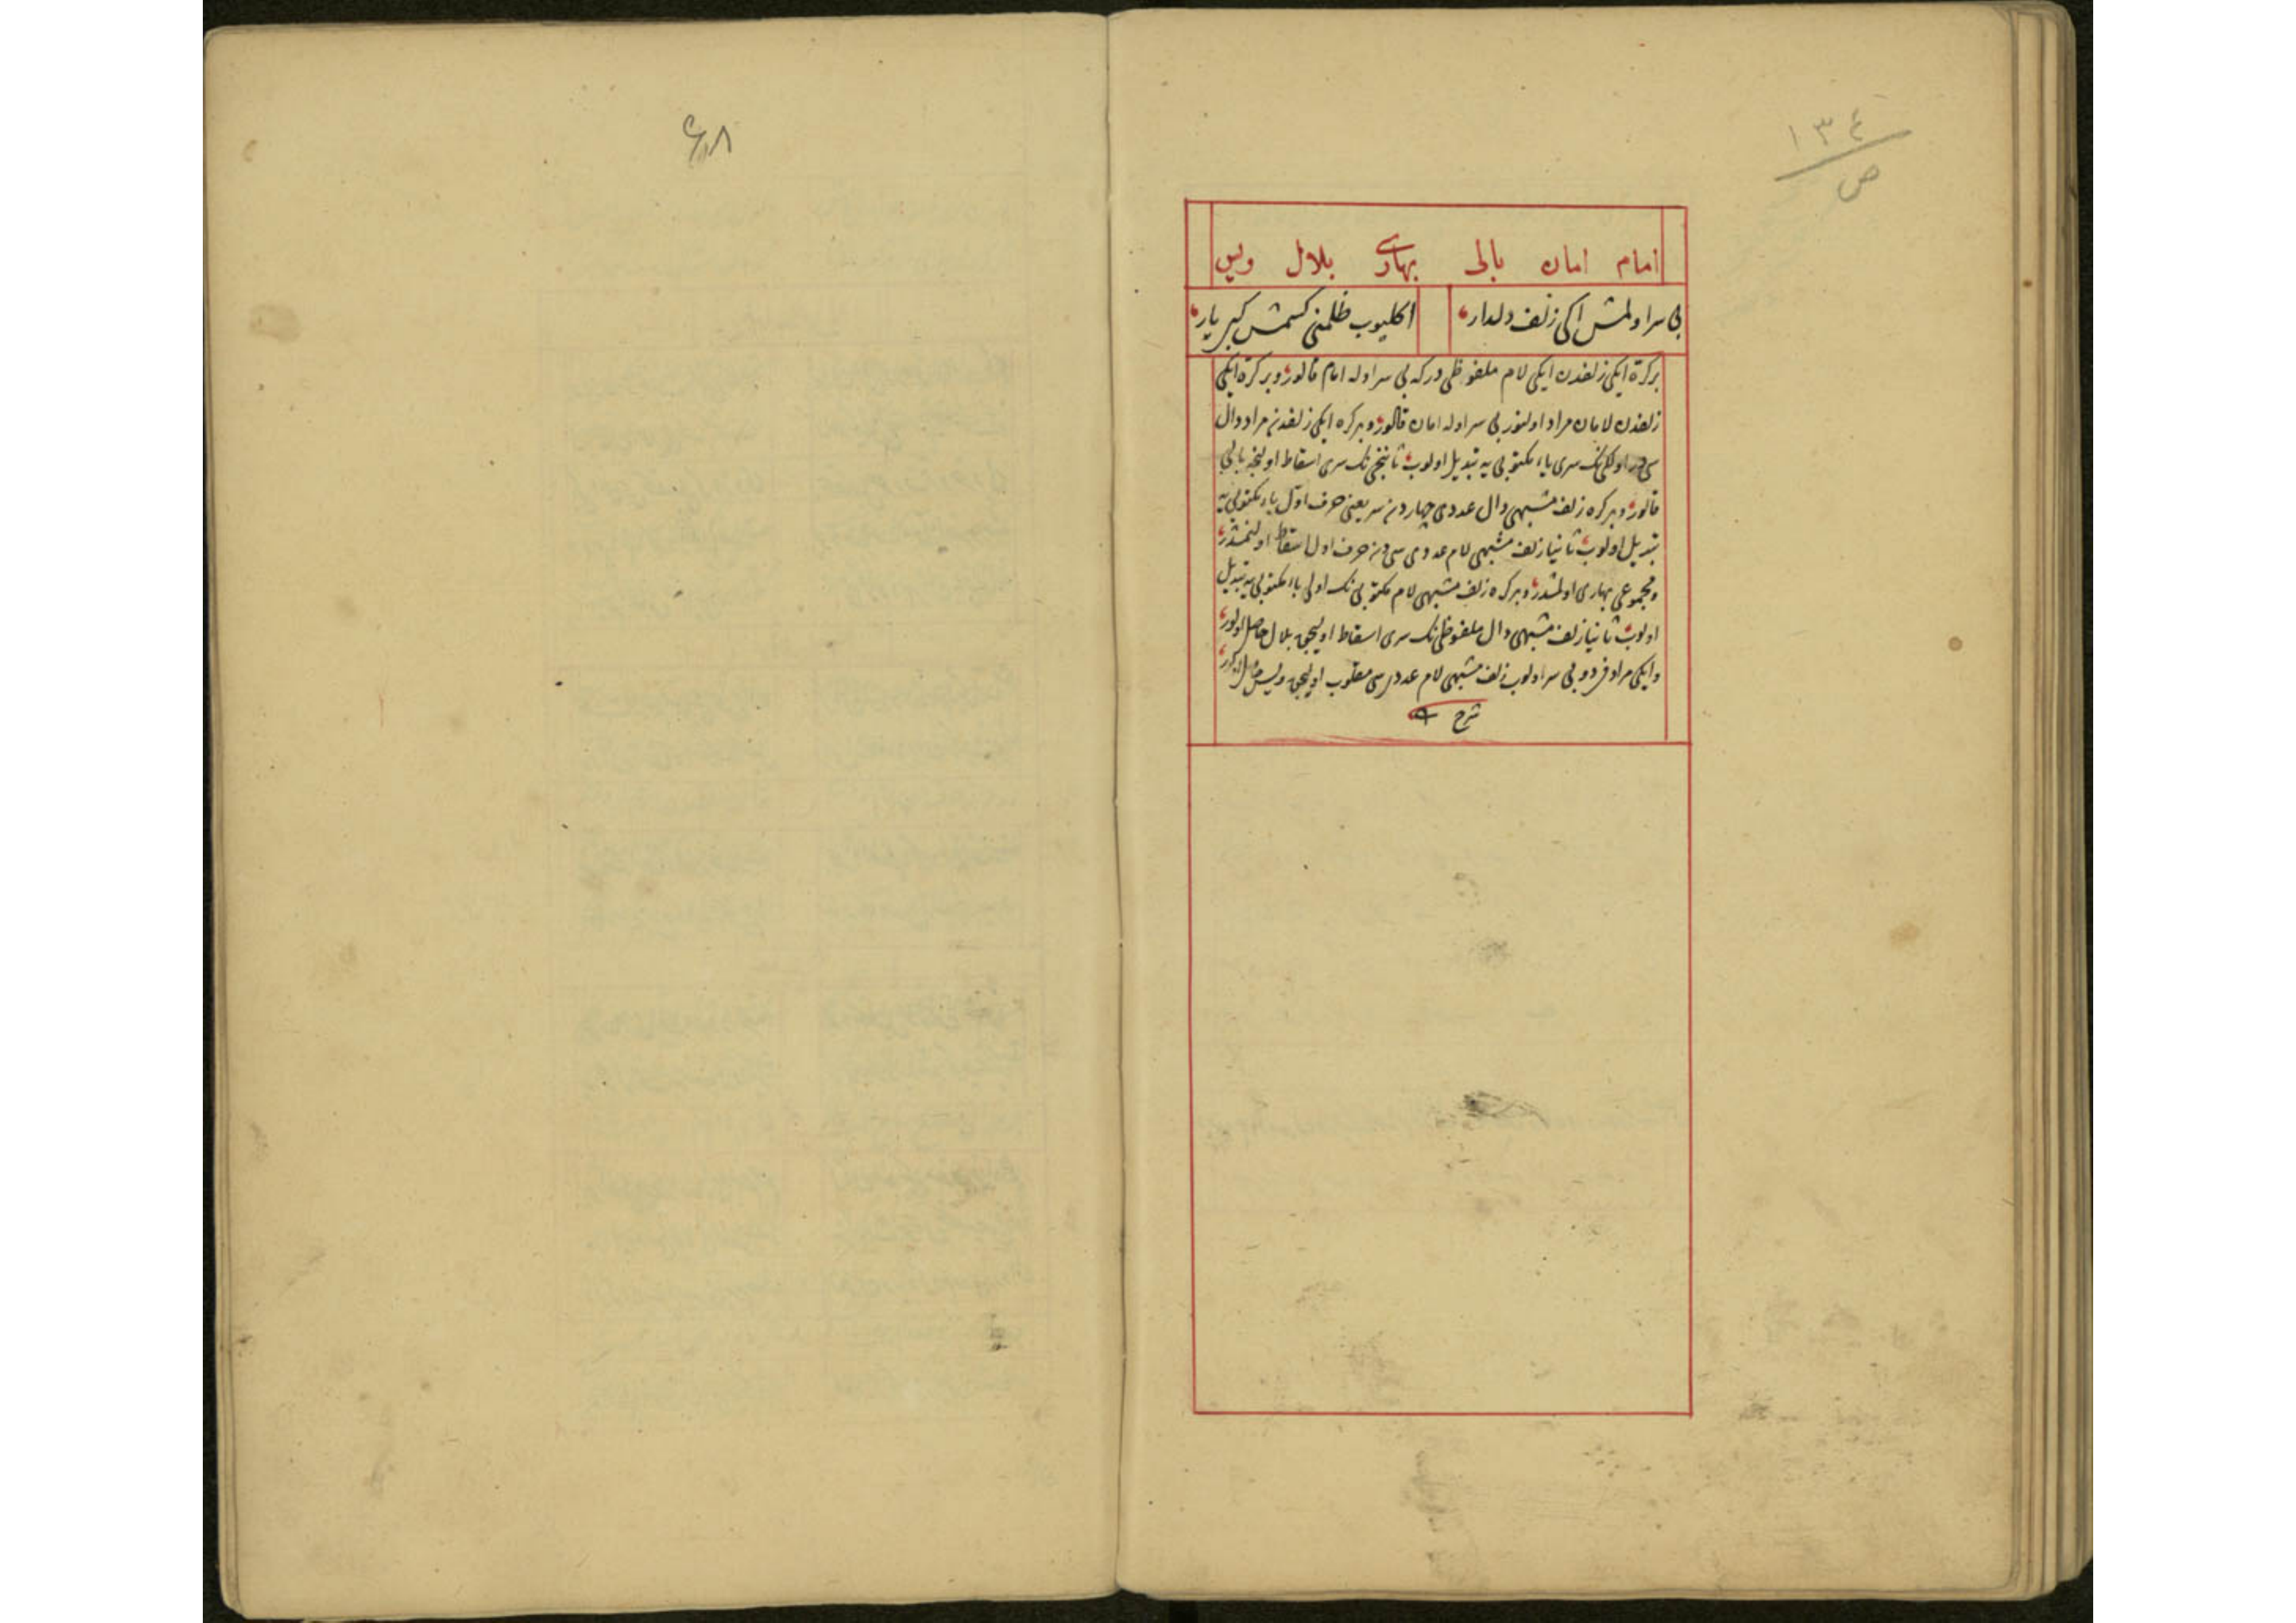 ١٣٤
ص
امام امان بالی بهاری بلال ویس
بی سر اولمش ایکی زلف دلدار
اکلیوب ظلمنی کسمش کبر یار
بر كرّه ایکی زلفدن ایکی لام ملفوظی درکه بی سر اوله امام قالور و بر کره ایکی
زلفدن لامان مراد اولنور بی سر اوله امان قالور و بر کره ایکی زلفدن مراد دال
سی در اولکینک سری یاء مکتوبی یه تبدیل اولوب ثانینک سری اسقاط اولنجه بالی
قالور و بر کره زلف مشبهی دال عددی چهار دن سر یعنی حرف اول باء مکتوبی یه
تبدیل اولوب ثانیا زلف مشبهی لام عددی سی دن حرف اول اسقاط اولنمشدر
و مجموعی بهاری اولمشدر و بر کره زلف مشبهی لام مکتوبی نک اولی باء مکتوبی یه تبدیل
اولوب ثانیا زلف مشبهی دال ملفوظی نک سری اسقاط اولیجق بلال حاصل اولور
و ایکی مراد فردو بی سر اولوب زلف مشبهی لام عددی سی مقلوب اولیجق ویس حاصل اولور
شرح
٦٨